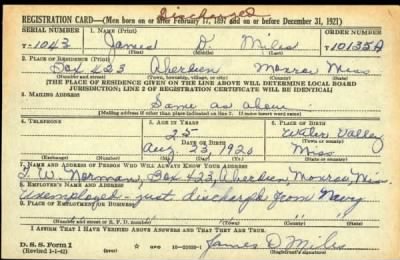 discharged
REGISTRATION CARD—(Men born on or after February 17, 1897 and on or before December 31, 1921)
SERIAL NUMBER 1. NAME (Print) ORDER NUMBER
T-1043 James D. Miles 10135A
(First) (Middle) (Last)
2. PLACE OF RESIDENCE (Print)
Box 423 Aberdeen Monroe Miss
(Number and street) (Town, township, village, or city) (County) (State)
[THE PLACE OF RESIDENCE GIVEN ON THE LINE ABOVE WILL DETERMINE LOCAL BOARD
JURISDICTION; LINE 2 OF REGISTRATION CERTIFICATE WILL BE IDENTICAL]
3. MAILING ADDRESS
Same as above
[Mailing address if other than place indicated on line 2. If same insert word same]
4. TELEPHONE 5. AGE IN YEARS 6. PLACE OF BIRTH
25 Water Valley
DATE OF BIRTH (Town or county)
Aug. 23, 1920 Miss
(Exchange) (Number) (Mo.) (Day) (Yr.) (State or country)
7. NAME AND ADDRESS OF PERSON WHO WILL ALWAYS KNOW YOUR ADDRESS
T. W. Norman, Box 423, Aberdeen, Monroe, Miss.
8. EMPLOYER'S NAME AND ADDRESS
Unemployed - just discharged from Navy
9. PLACE OF EMPLOYMENT OR BUSINESS
(Number and street or R. F. D. number) (Town) (County) (State)
I AFFIRM THAT I HAVE VERIFIED ABOVE ANSWERS AND THAT THEY ARE TRUE.
D. S. S. Form 1
(Revised 1-1-42) GPO James D Miles